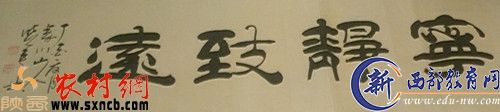 寧靜致遠
丁亥
陕西
农村網
www.sxncb.com
新
西部教育网
www.edu-nw.com